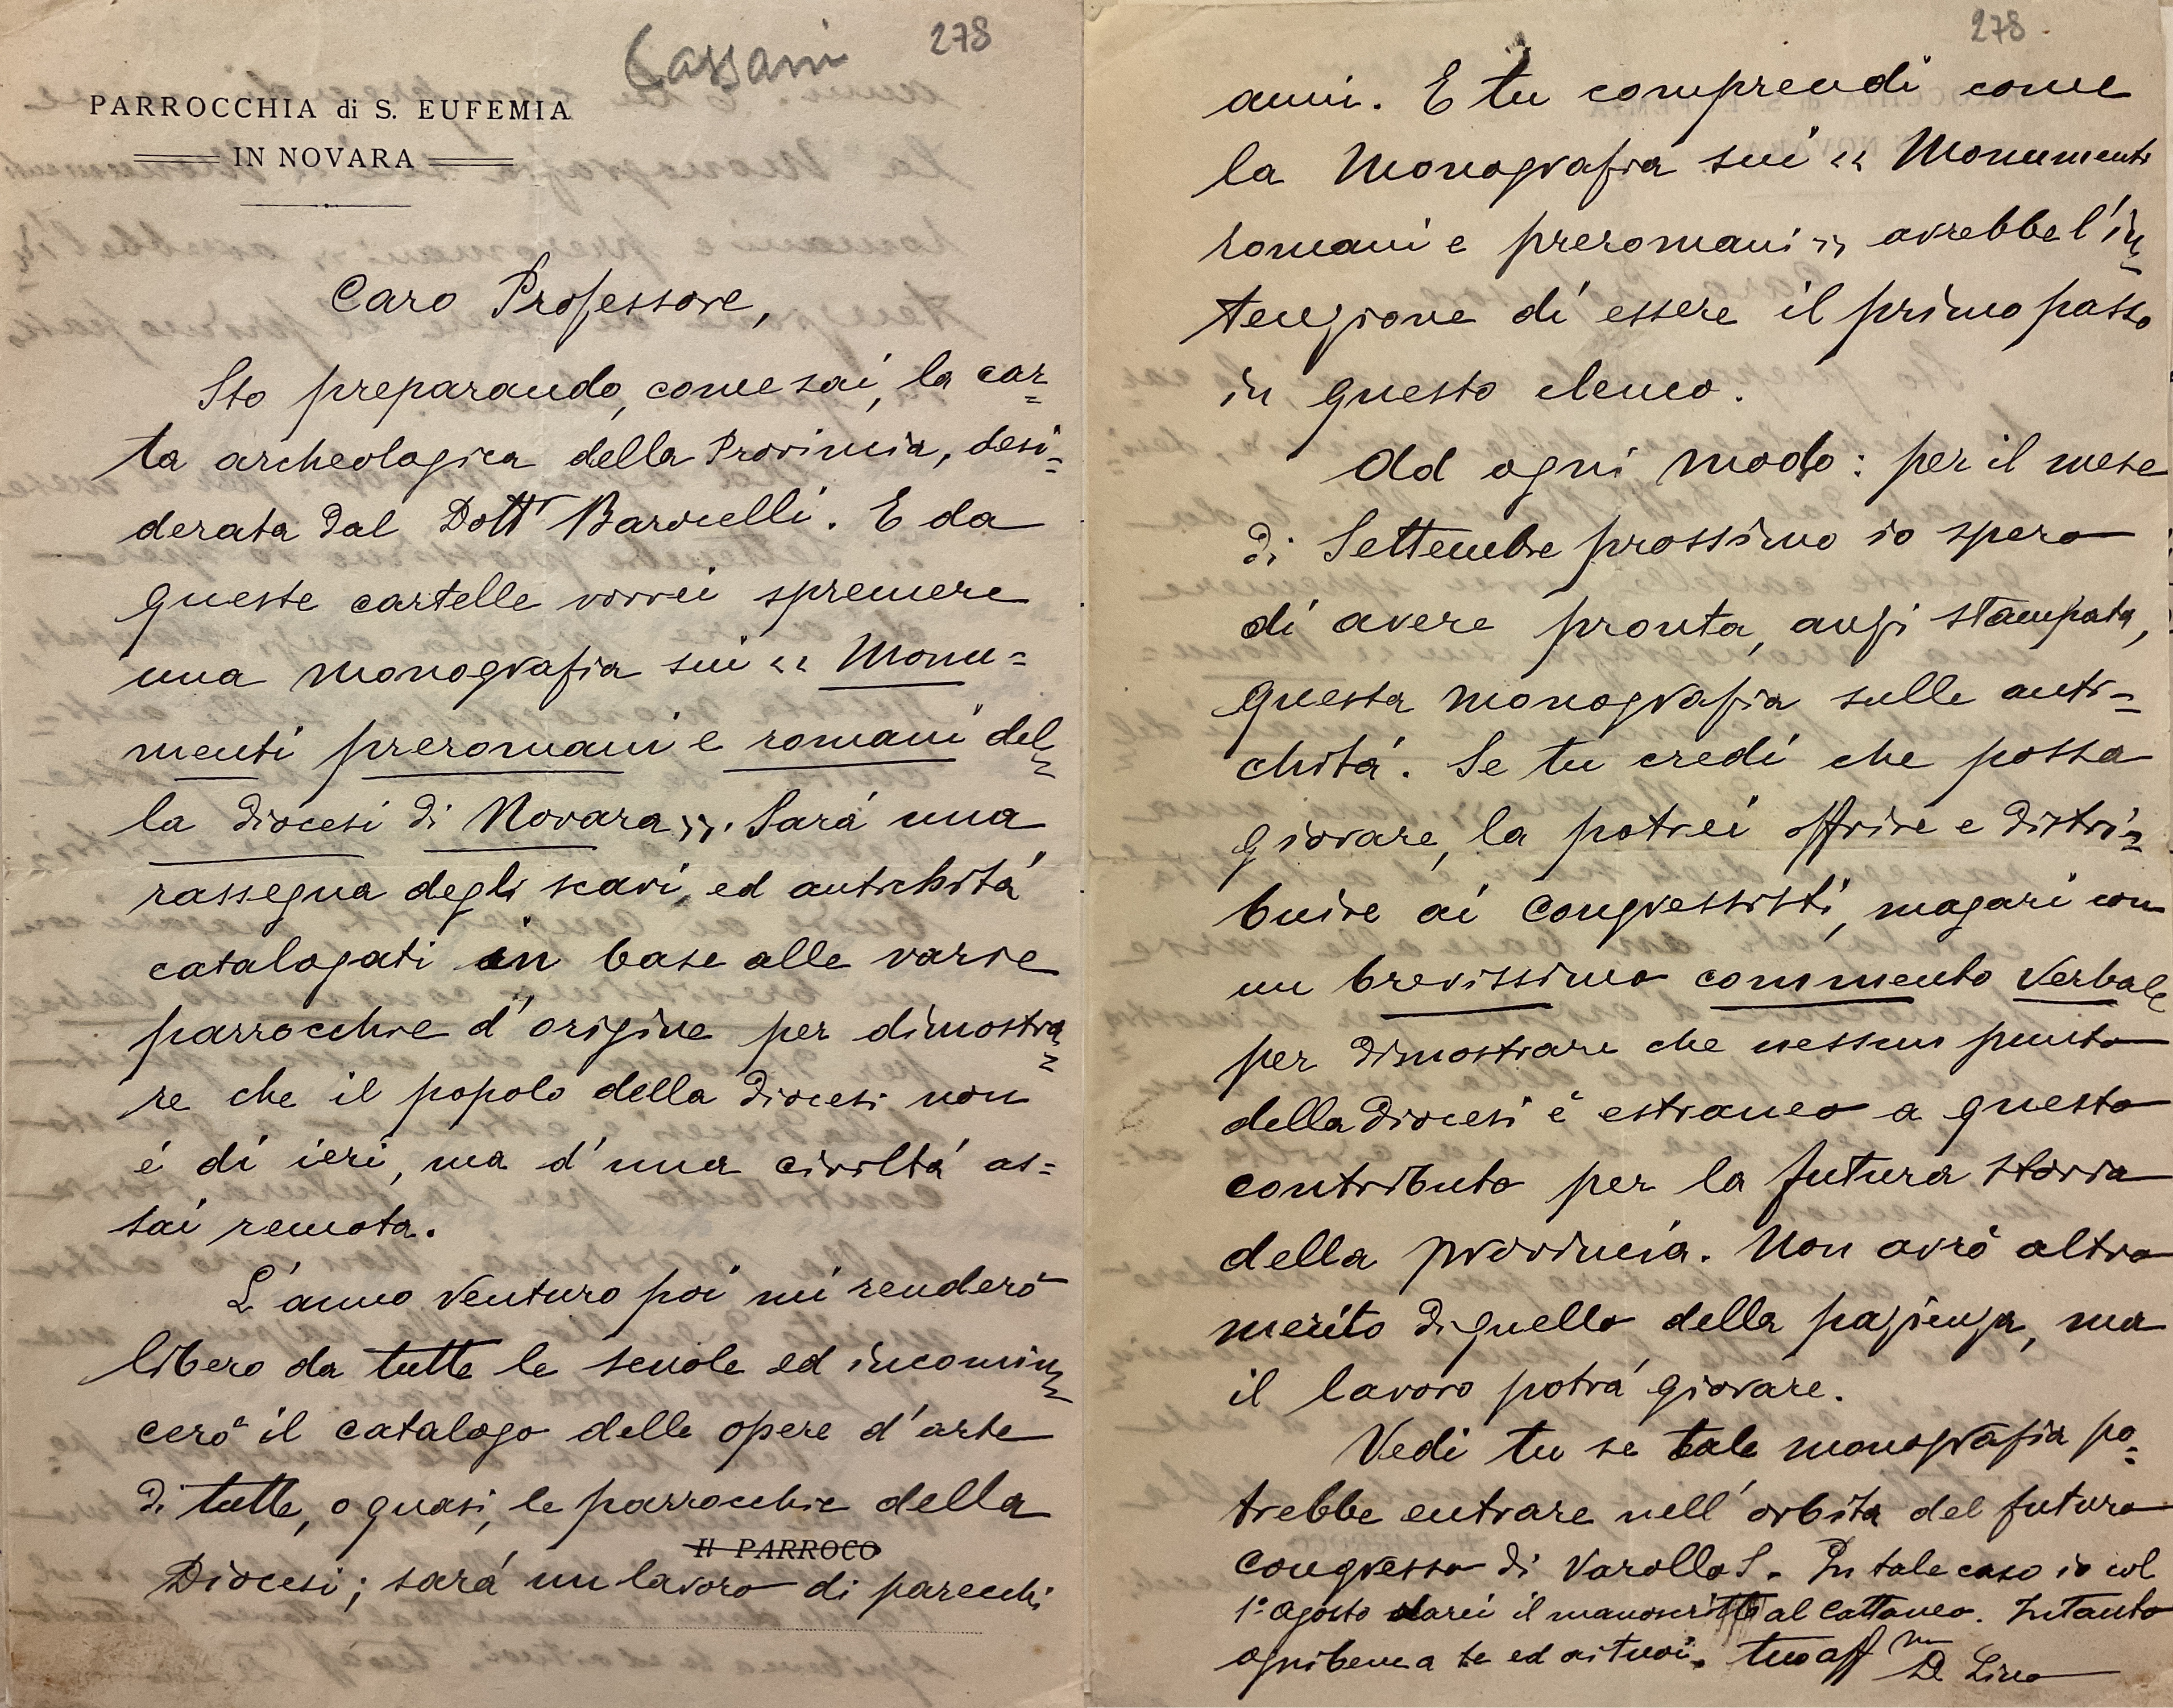 Cassani
278
PARROCCHIA di S. EUFEMIA
IN NOVARA
Caro Professore,
Sto preparando, come sai, la car=
ta archeologica della Provincia, desi=
derata dal Dott.r Barocelli. E da
queste cartelle vorrei spremere
una monografia sui « Monu=
menti preromani e romani del=
la diocesi di Novara ». Sará una
rassegna degli scavi, ed antichitá
catalogati in base alle varie
parrocchie d'origine per dimostra=
re che il popolo della diocesi non
é di ieri, ma d'una civiltá as=
sai remota.
L'anno venturo poi mi renderó
libero da tutte le scuole ed incomin=
ceró il catalogo delle opere d'arte
di tutte, o quasi, le parrocchie della
Il PARROCO
Diocesi; sará un lavoro di parecchi
278.
anni. E tu comprendi come
la Monografia sui « Monumenti
romani e preromani » avrebbe l'in=
tenzione di essere il primo passo
in questo elenco.
Ad ogni modo: per il mese
di Settembre prossimo io spero
di avere pronta, anzi stampata,
questa monografia sulle anti=
chitá. Se tu credi che possa
giovare, la potrei offrire e distri=
buire ai Congressisti, magari con
un brevissimo commento verbale
per dimostrare che nessun punto
della Diocesi é estraneo a questo
contributo per la futura storia
della provincia. Non avró altro
merito di quello della pazienza, ma
il lavoro potrá giovare.
Vedi tu se tale monografia po=
trebbe entrare nell'orbita del futuro
Congresso di Varallo S. In tale caso io col
1° Agosto darei il manoscritto al Cattaneo. Intanto
ogni bene a te ed ai tuoi. tuo aff mo
D. Lino